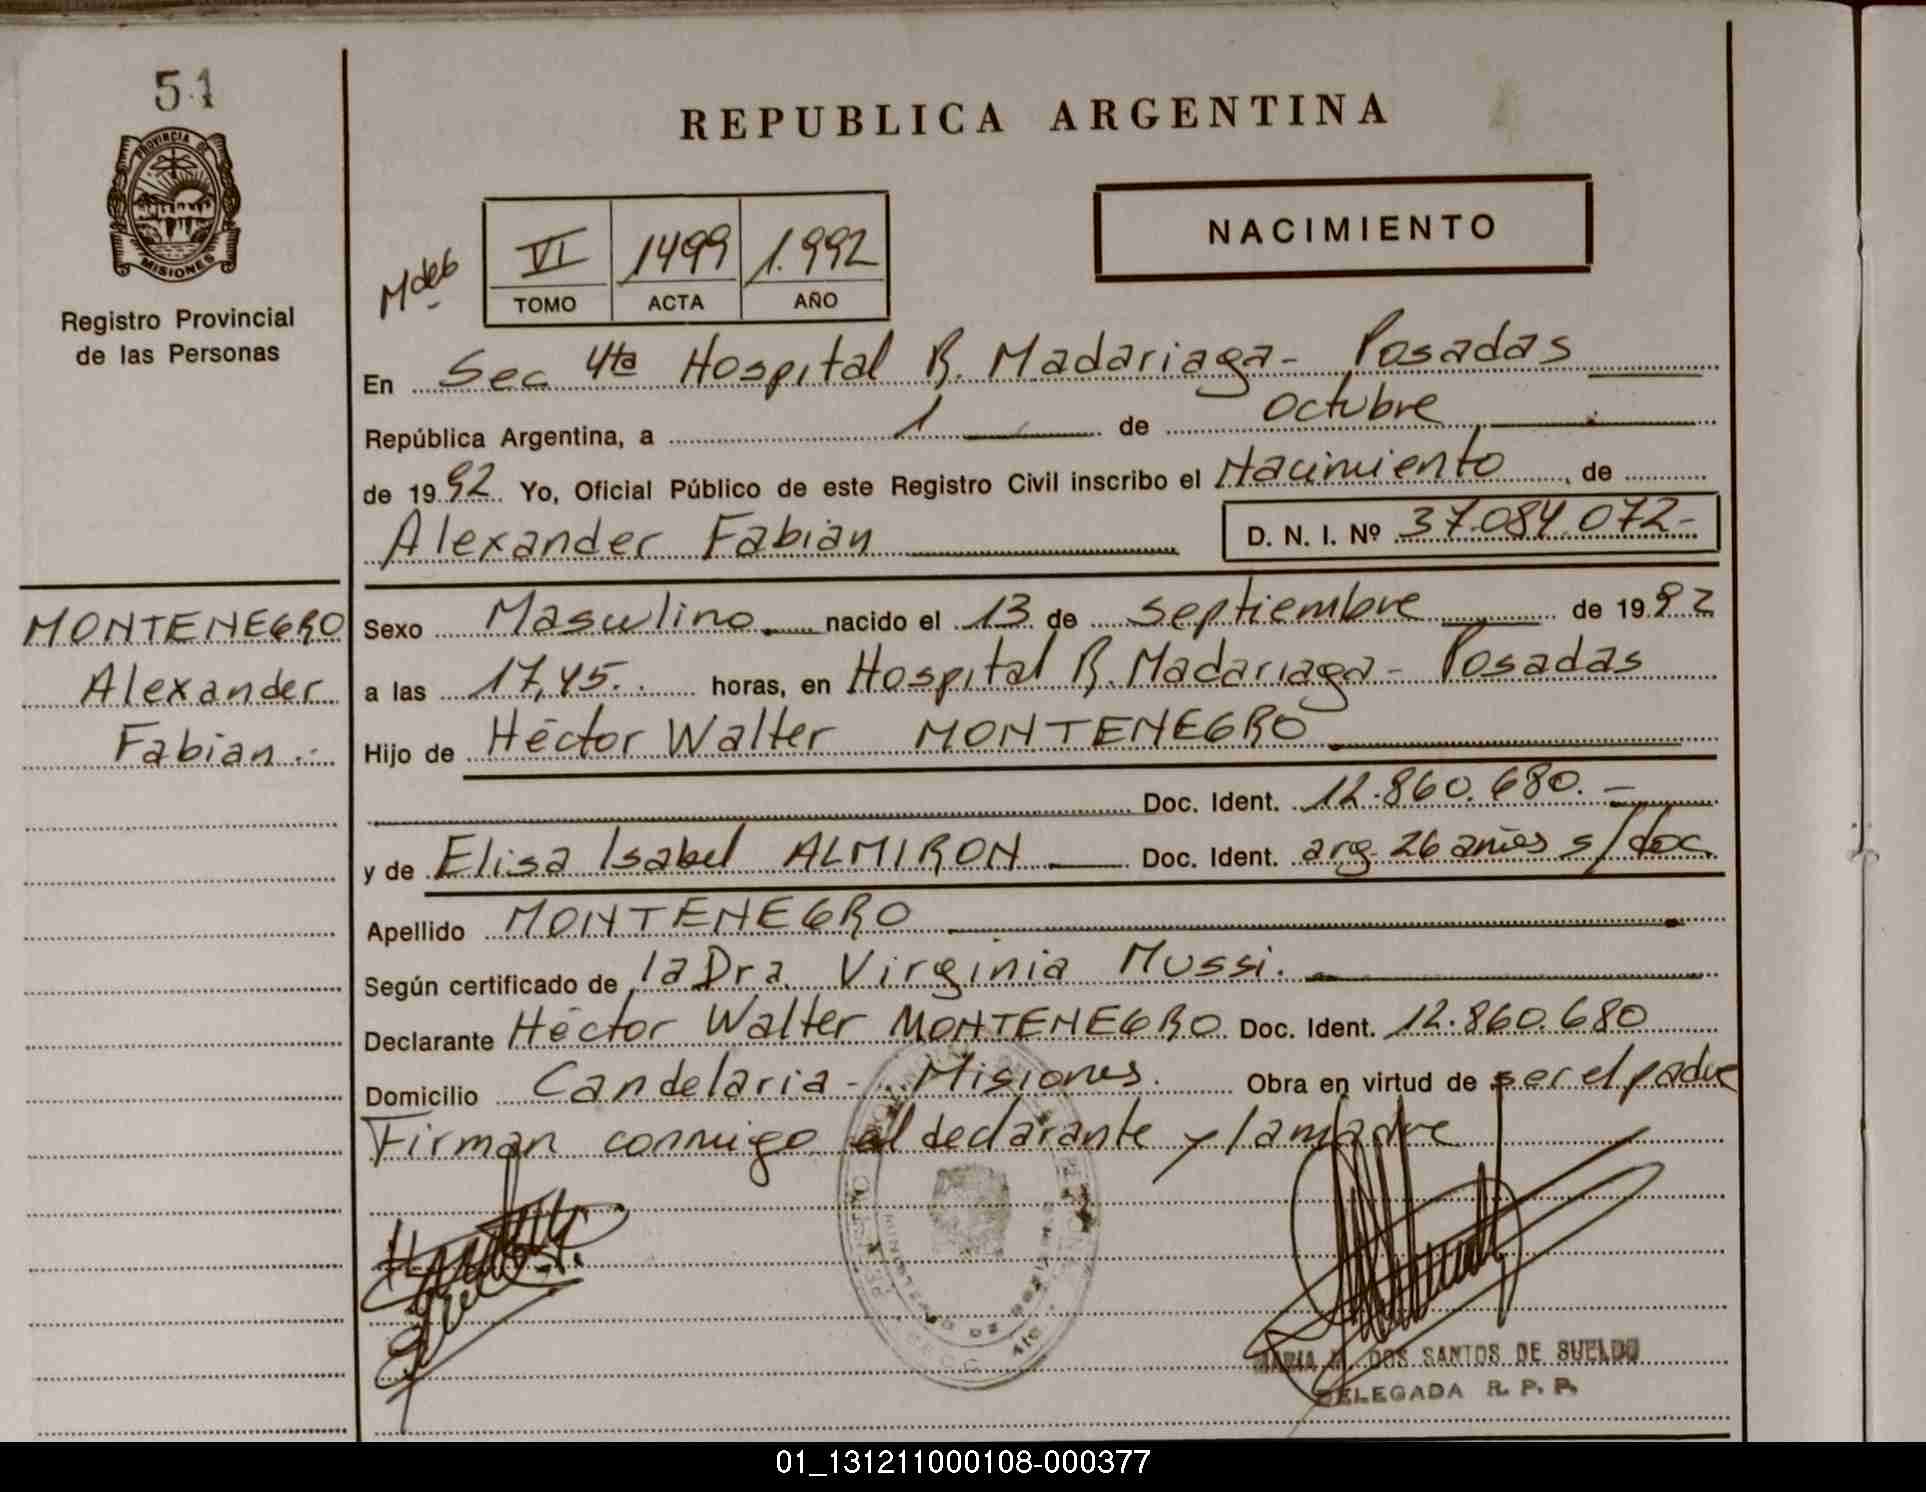 51
PROVINCIA DE
MISIONES
Registro Provincial
de las Personas
MONTENEGRO
Alexander
Fabian.-
REPUBLICA ARGENTINA
NACIMIENTO
VI 1499 1.992
TOMO ACTA AÑO
En Sec 4ta Hospital R. Madariaga- Posadas
República Argentina, a 1 de Octubre
de 1992 Yo, Oficial Público de este Registro Civil inscribo el Nacimiento, de
Alexander Fabian D. N. I. Nº 37.084.072-
Sexo Masculino nacido el 13 de septiembre de 1992
a las 17,45. horas, en Hospital R. Madariaga- Posadas
Hijo de Héctor Walter MONTENEGRO
Doc. Ident. 12.860.680.-
y de Elisa Isabel ALMIRON Doc. Ident. arg. 26 años s/doc
Apellido MONTENEGRO
Según certificado de la Dra. Virginia Mussi.
Declarante Héctor Walter MONTENEGRO Doc. Ident. 12.860.680
Domicilio Candelaria- Misiones. Obra en virtud de ser el padre
Firman conmigo el declarante y la madre
MARIA DOS SANTOS DE SUELDO
DELEGADA R. P. P.
01_131211000108-000377